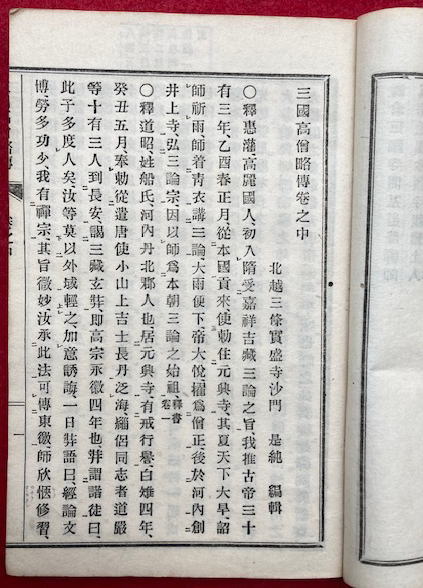 三國高僧略傳卷之中
北越三條寳盛寺沙門　是純　編輯
〇釋惠灌、高麗國人、初入隋受嘉祥吉藏三論之旨我推古帝三十
有三年、乙酉春正月從本國貢來、使勅住元興寺、其夏天下大旱、詔
師祈雨、師着靑衣講三論大雨便下帝大悅擢爲僧正後於河內創
井上寺、弘三論宗、因以師爲本朝三論之始祖、釋書卷一
〇釋道昭、姓船氏、河内丹北郡人也、居元興寺、有戒行譽、白雉四年、
癸丑五月奉勅從遣唐使小山上吉士長丹泛海、緇侶同志者道嚴
等十有三人到長安、謁三藏玄弉、卽高宗永徽四年也弉謂諸徒曰、
此子多度人矣、汝等莫以外域輕之、加意誘誨、一日弉語曰、經論文
博、勞多功少、我有禪宗、其旨微妙、汝承此法可傳東徼師欣愜修習、